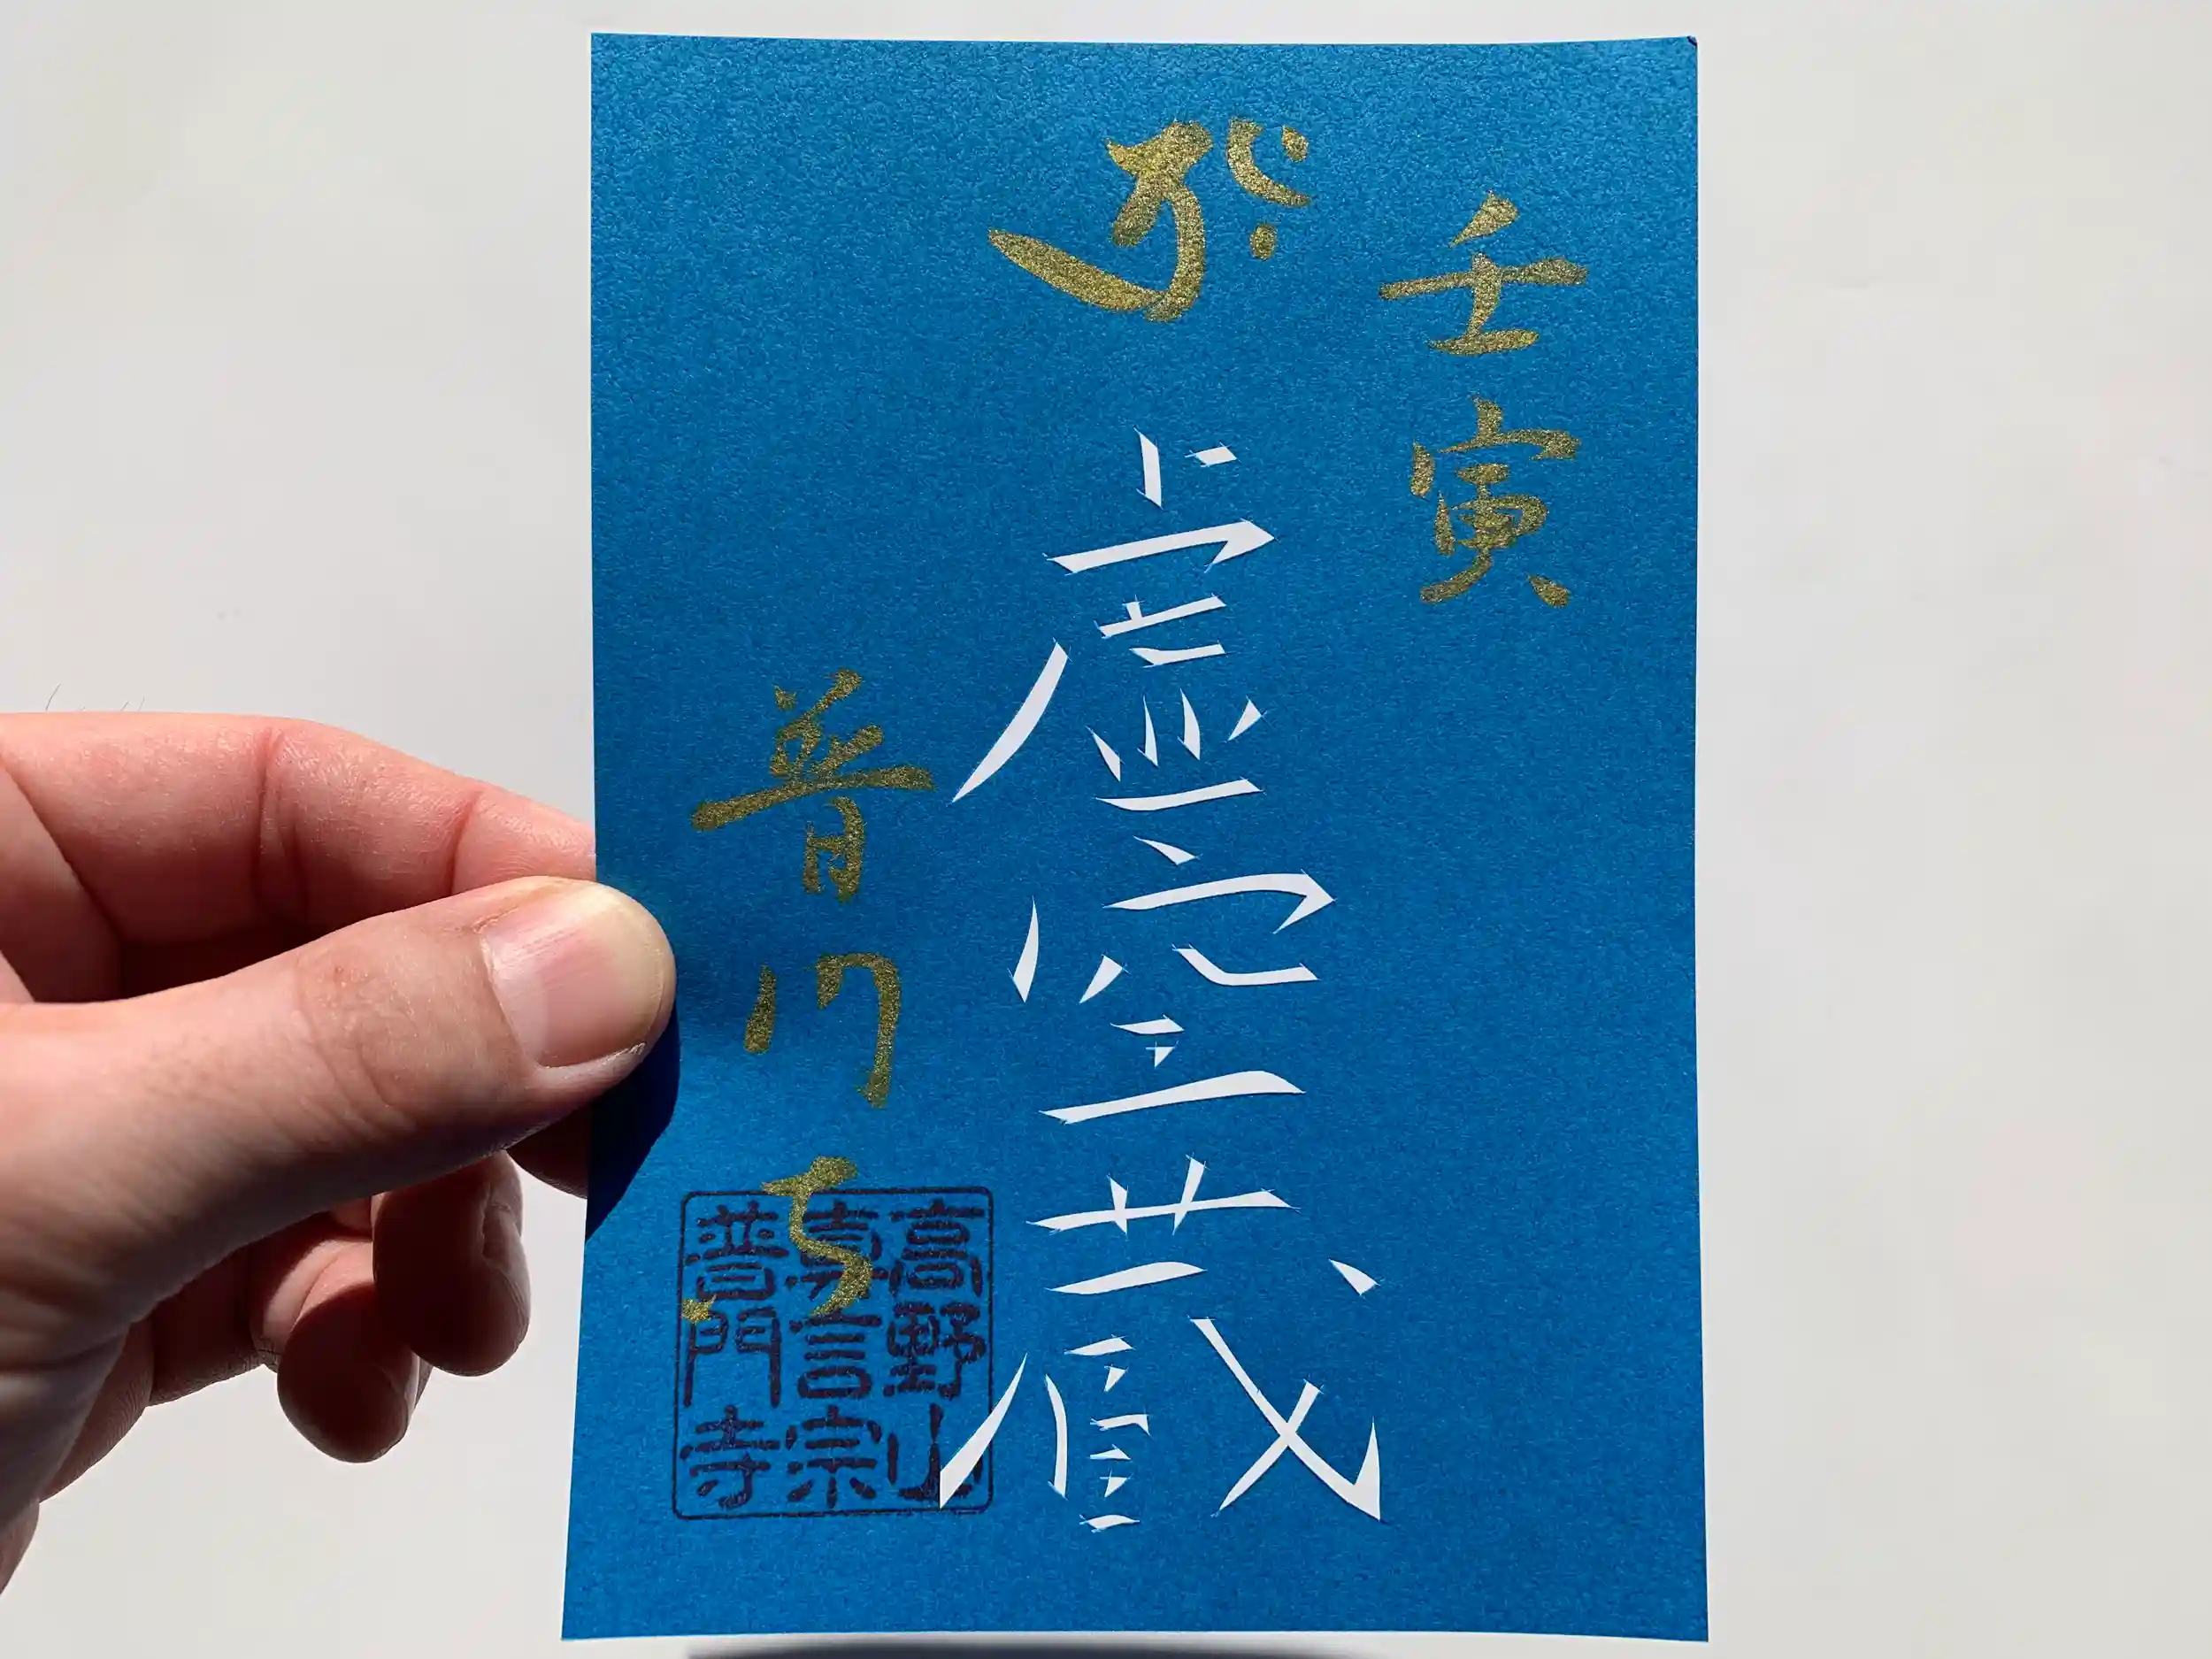 壬寅
𑖝𑖿𑖨𑖯𑖾
虚空蔵
普門寺
高野山
真言宗
普門寺